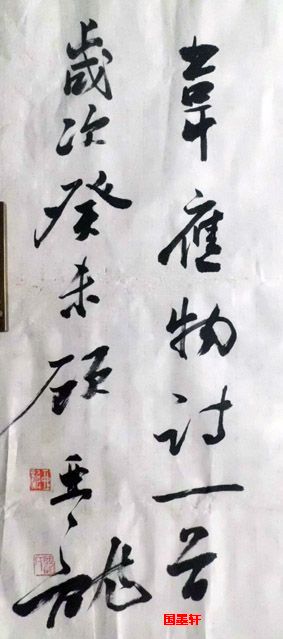 韋應物詩一首
歲次癸未顧亞龍
国墨轩